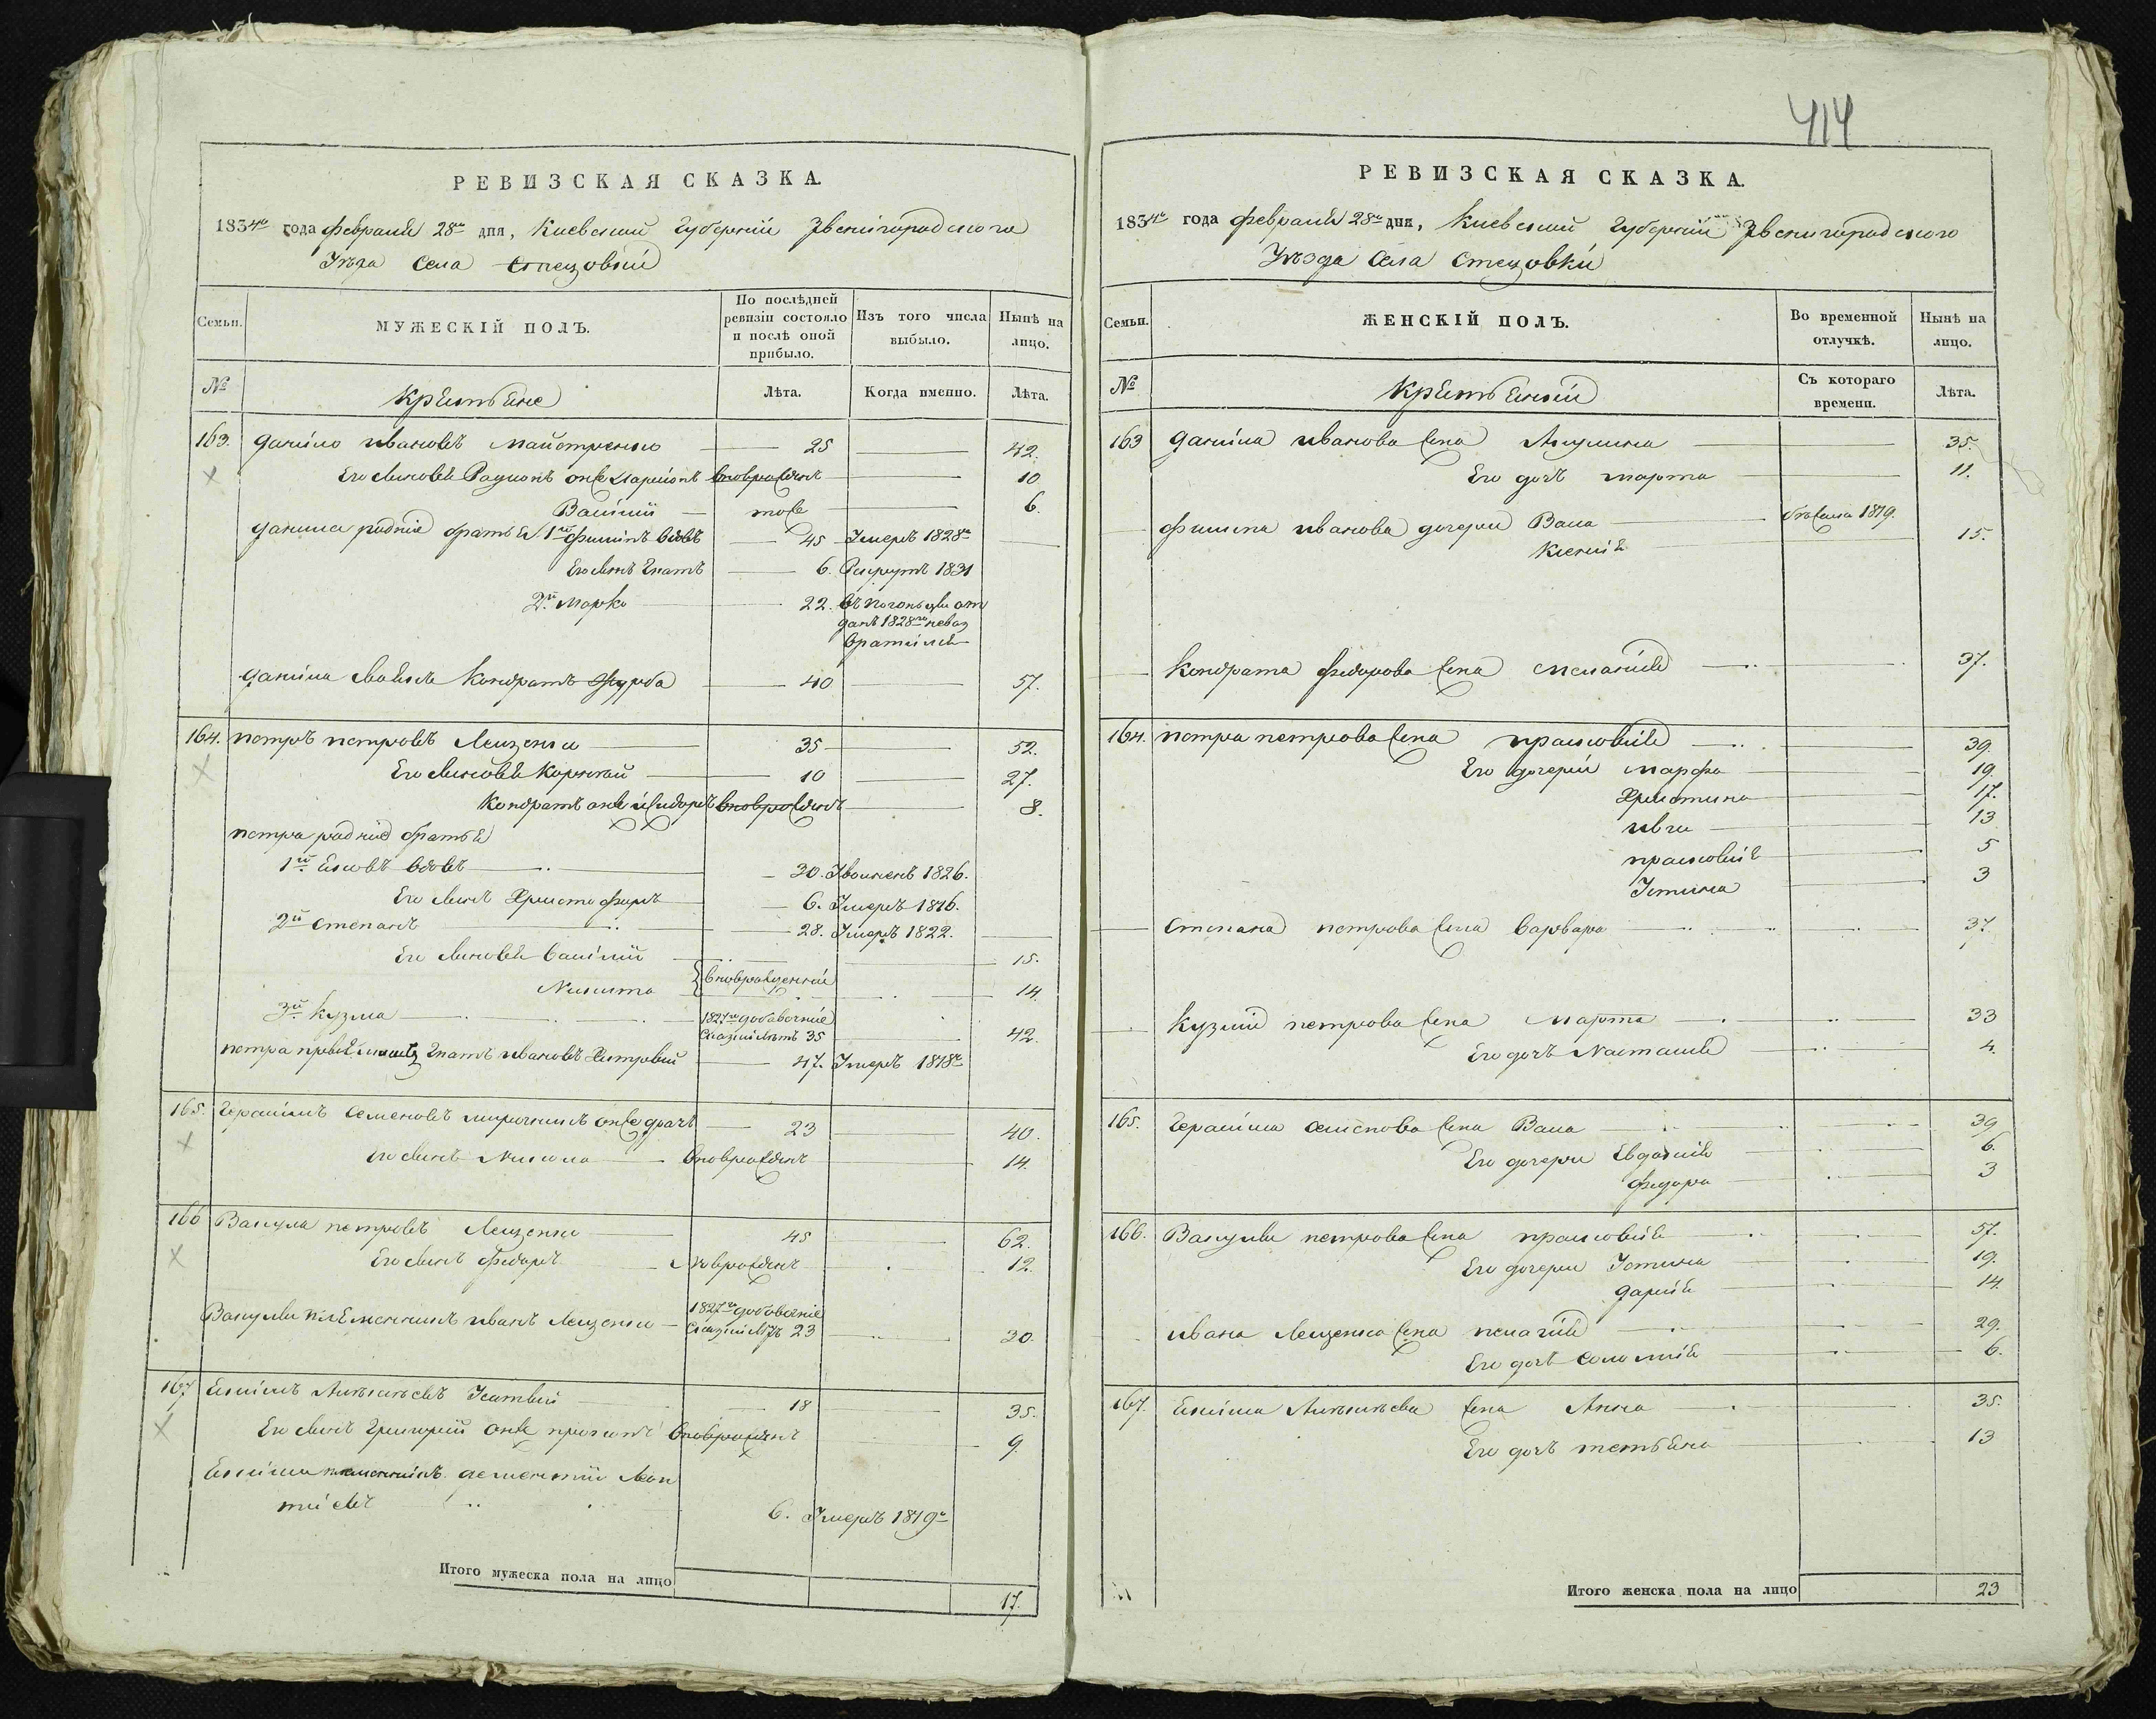 414
РЕВИЗСКАЯ СКАЗКА.
1834го года февраля 28го дня, Киевской Губернии Звенигородского
Уезда Села Стецовки
Семьи.
МУЖЕСКІЙ ПОЛЪ.
По послѣдней ревизіи состояло и послѣ оной прибыло.
Изъ того числа выбыло.
Нынѣ на лицо.
№
Крестьяне
Лѣта.
Когда именно.
Лѣта.
163. Данило Ивановъ Майстренко 25 42.
Его сыновья Радионъ онже Ларионъ вновърожденъ 10
Василий тоже 6.
Данила родние братья 1й Филипъ вдовъ 45 Умеръ 1828го
Его сынъ Игнатъ 6. Рекрутъ 1831
2й Марко 22. въ погонъцы от
данъ 1828го невоз
вратился
Данила Кондратъ 40 57.
164. Петръ Петровъ Лещенко 35 52.
Его сыновья Корнѣй 10 27.
Кондратъ онже и Сидоръ вновърожденъ 8.
Петра родние братья
1й Яковъ вдовъ 30. 1826.
Его сынъ Христофоръ 6. Умеръ 1816.
2й Степанъ 28. Умеръ 1822.
Его сыновья Василий 15.
вноврожденние
Никита 14.
3й Кузма 1827го добавочние
сказки лѣтъ 35 42.
Петра Игнатъ Ивановъ 47. Умеръ 1818го
165. Герасимъ Семеновъ онже 23 40.
Его сынъ Микола вноврожденъ 14.
166 Вакула Петровъ Лещенко 45 62.
Его сынъ Федоръ новрожденъ 12.
Вакулы племенникъ Иванъ Лещенко 1827го добовочние
сказки лѣтъ 23 30.
167 Якимъ Алексѣевъ 18 35.
Его сынъ Григорий онже вноврожденъ 9.
Якима племенникъ Дементий Леон
тиевъ 6. Умеръ 1819го
Итого мужеска пола на лицо 17.
РЕВИЗСКАЯ СКАЗКА.
1834го года февраля 28го дня, Киевской Губернии Звенигородского
Уезда Села Стецовки
Семьи.
ЖЕНСКІЙ ПОЛЪ.
Во временной отлучкѣ.
Нынѣ на лицо.
№
Крестьянки
Съ котораго времени.
Лѣта.
163 Данила Иванова жена Акулина 35.
Его дочь Марта 11.
Филипа Иванова дочери Васа бѣжала 1819.
Ксения 15.
Кондрата Федорова жена Мелания 37.
164. Петра Петрова жена Прасковия 39.
Его дочери Марфа 19.
Христина 17.
Ивга 13
Прасковия 5
Устина 3
Степана Петрова жена Варвара 37.
Кузмы Петрова жена Марта 33
Его дочь Насташия 4.
165. Герасима Семенова жена Васа 39
Его дочери Евдокия 6.
Федора 3
166. Вакулы Петрова жена Прасковия 57.
Его дочери Устина 19.
Дария 14.
Ивана Лещенка жена Пелагия 29.
Его дочь Соломия 6.
167. Якима Алексѣева жена Анна 35.
Его дочь Тетьяна 13
Итого женска пола на лицо 23